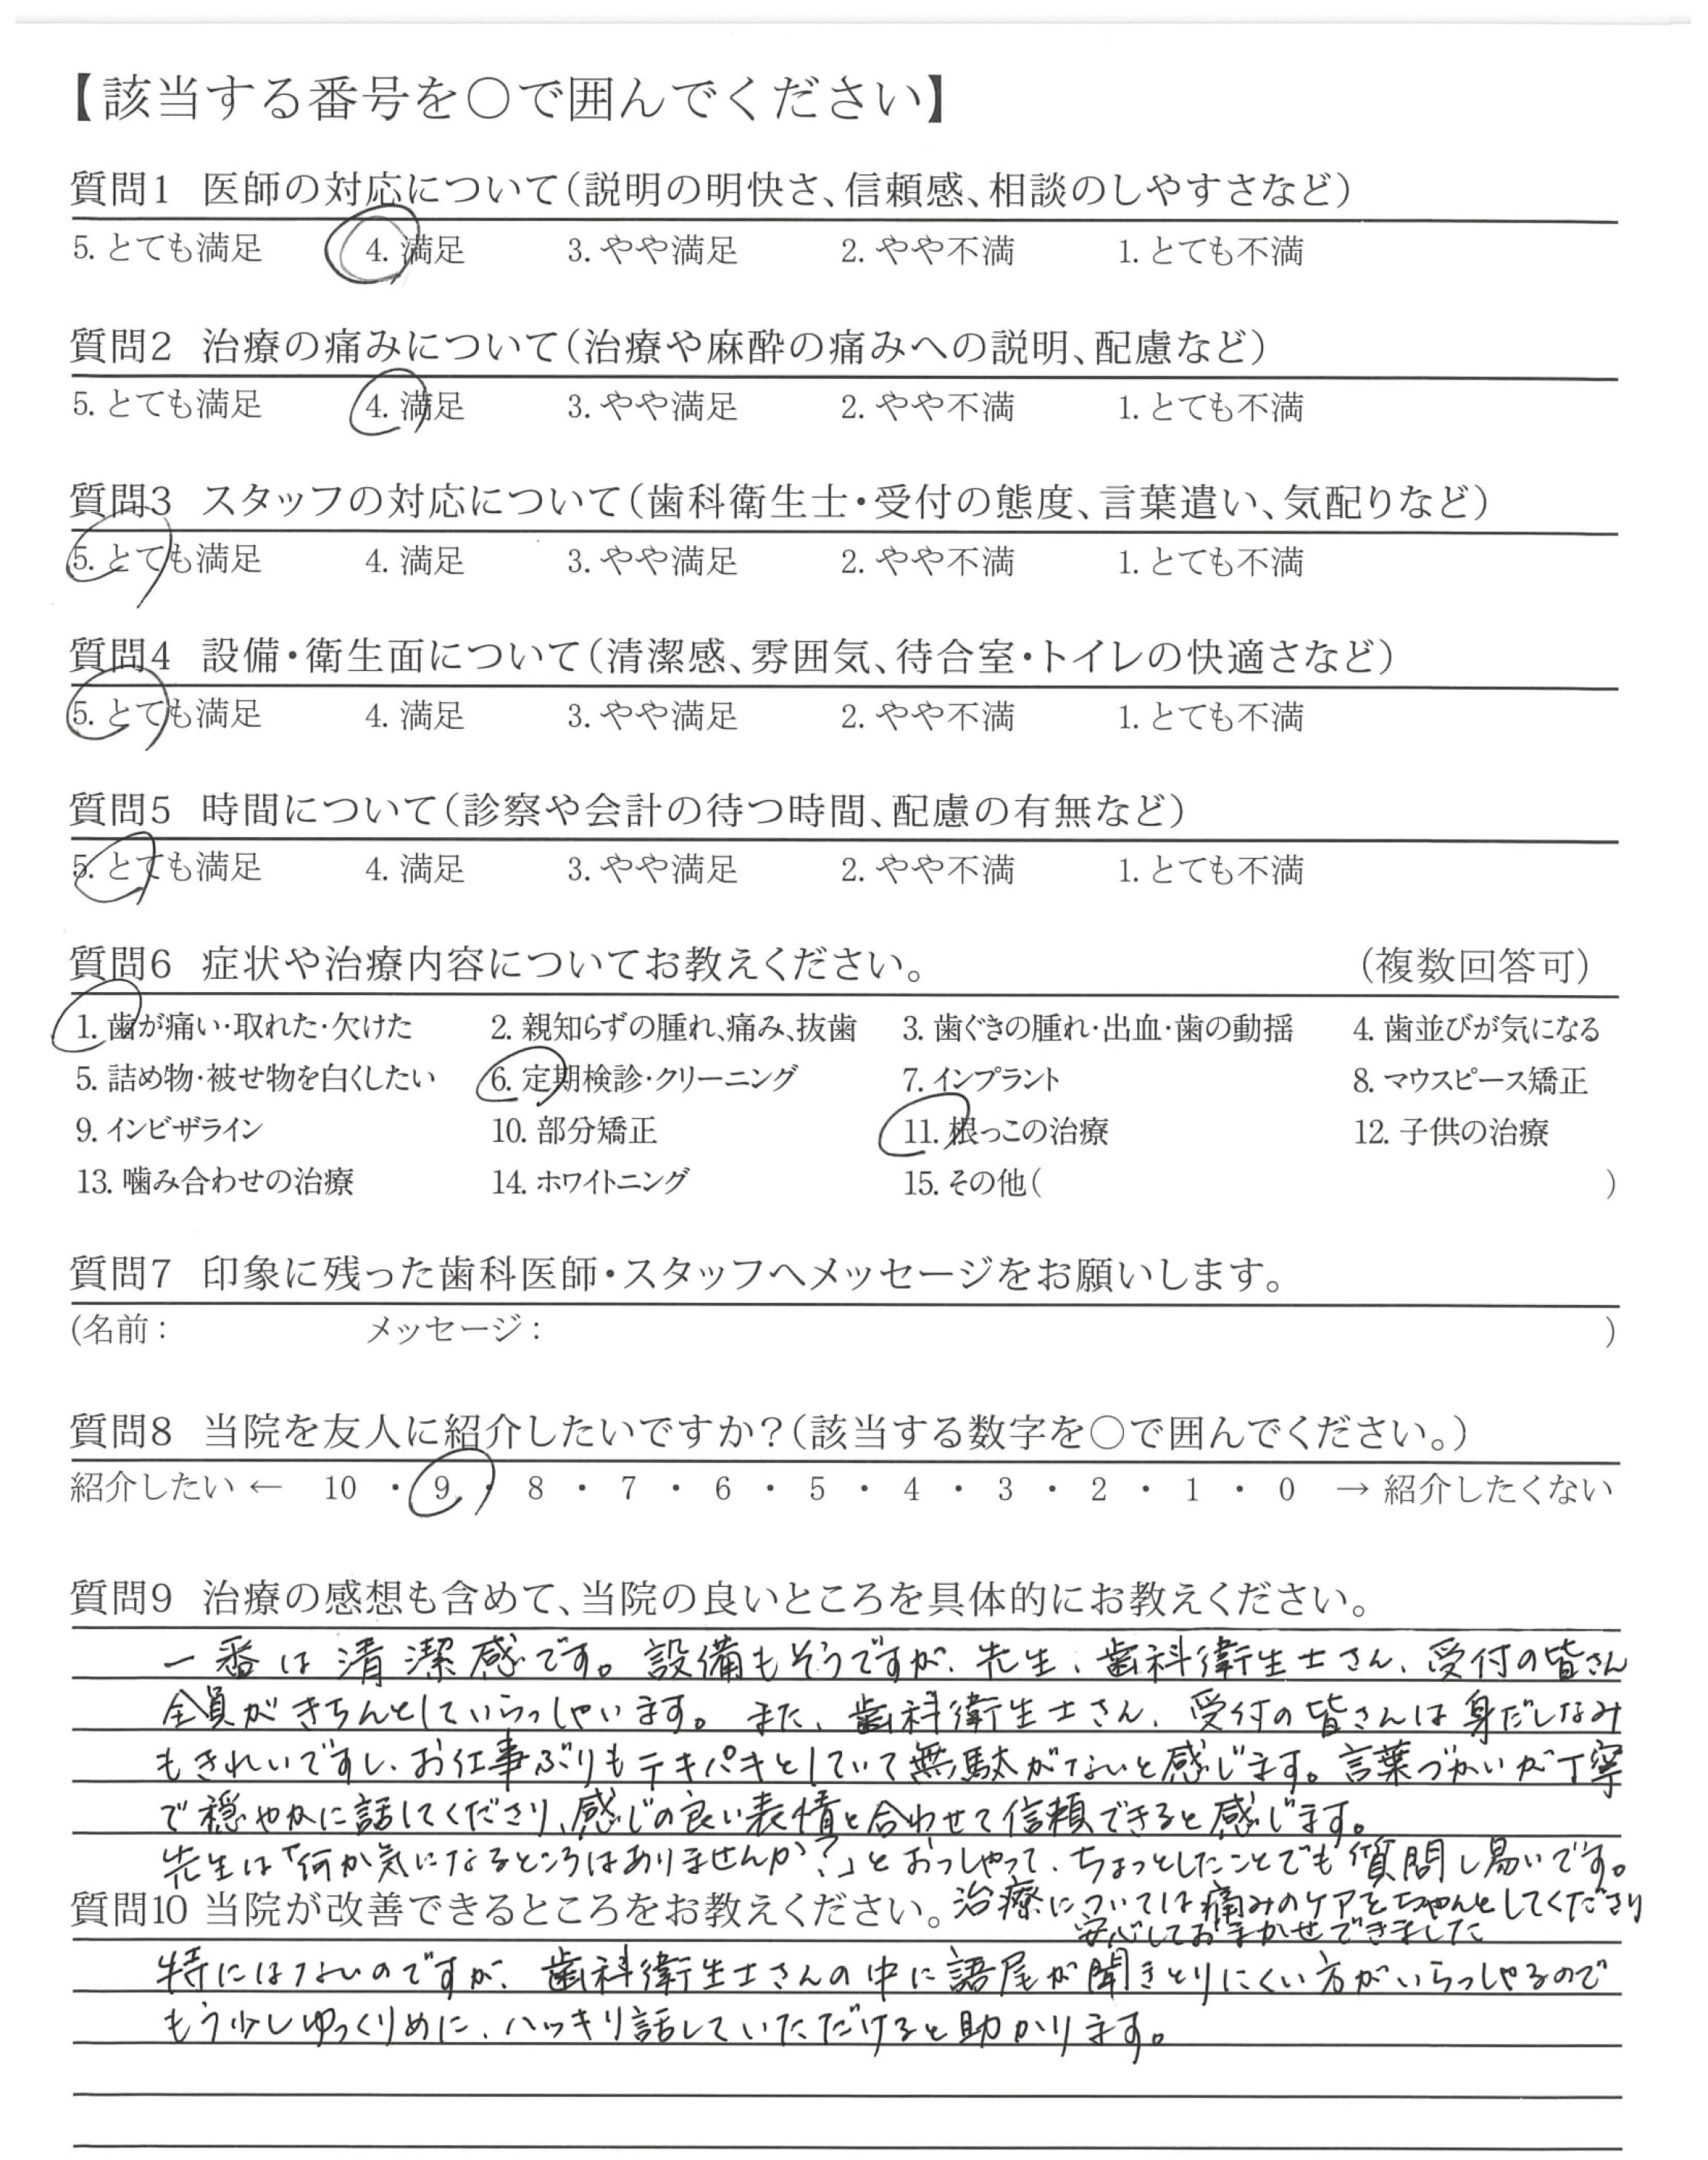 【該当する番号を○で囲んでください】
質問1 医師の対応について(説明の明快さ、信頼感、相談のしやすさなど)
5. とても満足 4. 満足 3. やや満足 2. やや不満 1. とても不満
質問2 治療の痛みについて(治療や麻酔の痛みへの説明、配慮など)
5. とても満足 4. 満足 3. やや満足 2. やや不満 1. とても不満
質問3 スタッフの対応について(歯科衛生士・受付の態度、言葉遣い、気配りなど)
5. とても満足 4. 満足 3. やや満足 2. やや不満 1. とても不満
質問4 設備・衛生面について(清潔感、雰囲気、待合室・トイレの快適さなど)
5. とても満足 4. 満足 3. やや満足 2. やや不満 1. とても不満
質問5 時間について(診察や会計の待つ時間、配慮の有無など)
5. とても満足 4. 満足 3. やや満足 2. やや不満 1. とても不満
質問6 症状や治療内容についてお教えください。 (複数回答可)
1. 歯が痛い・取れた・欠けた 2. 親知らずの腫れ、痛み、抜歯 3. 歯ぐきの腫れ・出血・歯の動揺 4. 歯並びが気になる
5. 詰め物・被せ物を白くしたい 6. 定期検診・クリーニング 7. インプラント 8. マウスピース矯正
9. インビザライン 10. 部分矯正 11. 根っこの治療 12. 子供の治療
13. 噛み合わせの治療 14. ホワイトニング 15. その他( )
質問7 印象に残った歯科医師・スタッフへメッセージをお願いします。
(名前: メッセージ: )
質問8 当院を友人に紹介したいですか?(該当する数字を○で囲んでください。)
紹介したい ← 10 ・ 9 ・ 8 ・ 7 ・ 6 ・ 5 ・ 4 ・ 3 ・ 2 ・ 1 ・ 0 → 紹介したくない
質問9 治療の感想も含めて、当院の良いところを具体的にお教えください。
一番は清潔感です。設備もそうですが、先生、歯科衛生士さん、受付の皆さん
全員がきちんとしていらっしゃいます。また、歯科衛生士さん、受付の皆さんは身だしなみ
もきれいですし、お仕事ぶりもテキパキとしていて無駄がないと感じます。言葉づかいが丁寧
で穏やかに話してくださり、感じの良い表情と合わせて信頼できると感じます。
先生は「何か気になるところはありませんか?」とおっしゃって、ちょっとしたことでも質問し易いです。
治療については痛みのケアをちゃんとしてくださり
安心しておまかせできました
質問10 当院が改善できるところをお教えください。
特にはないのですが、歯科衛生士さんの中に語尾が聞きとりにくい方がいらっしゃるので
もう少しゆっくりめに、ハッキリ話していただけると助かります。